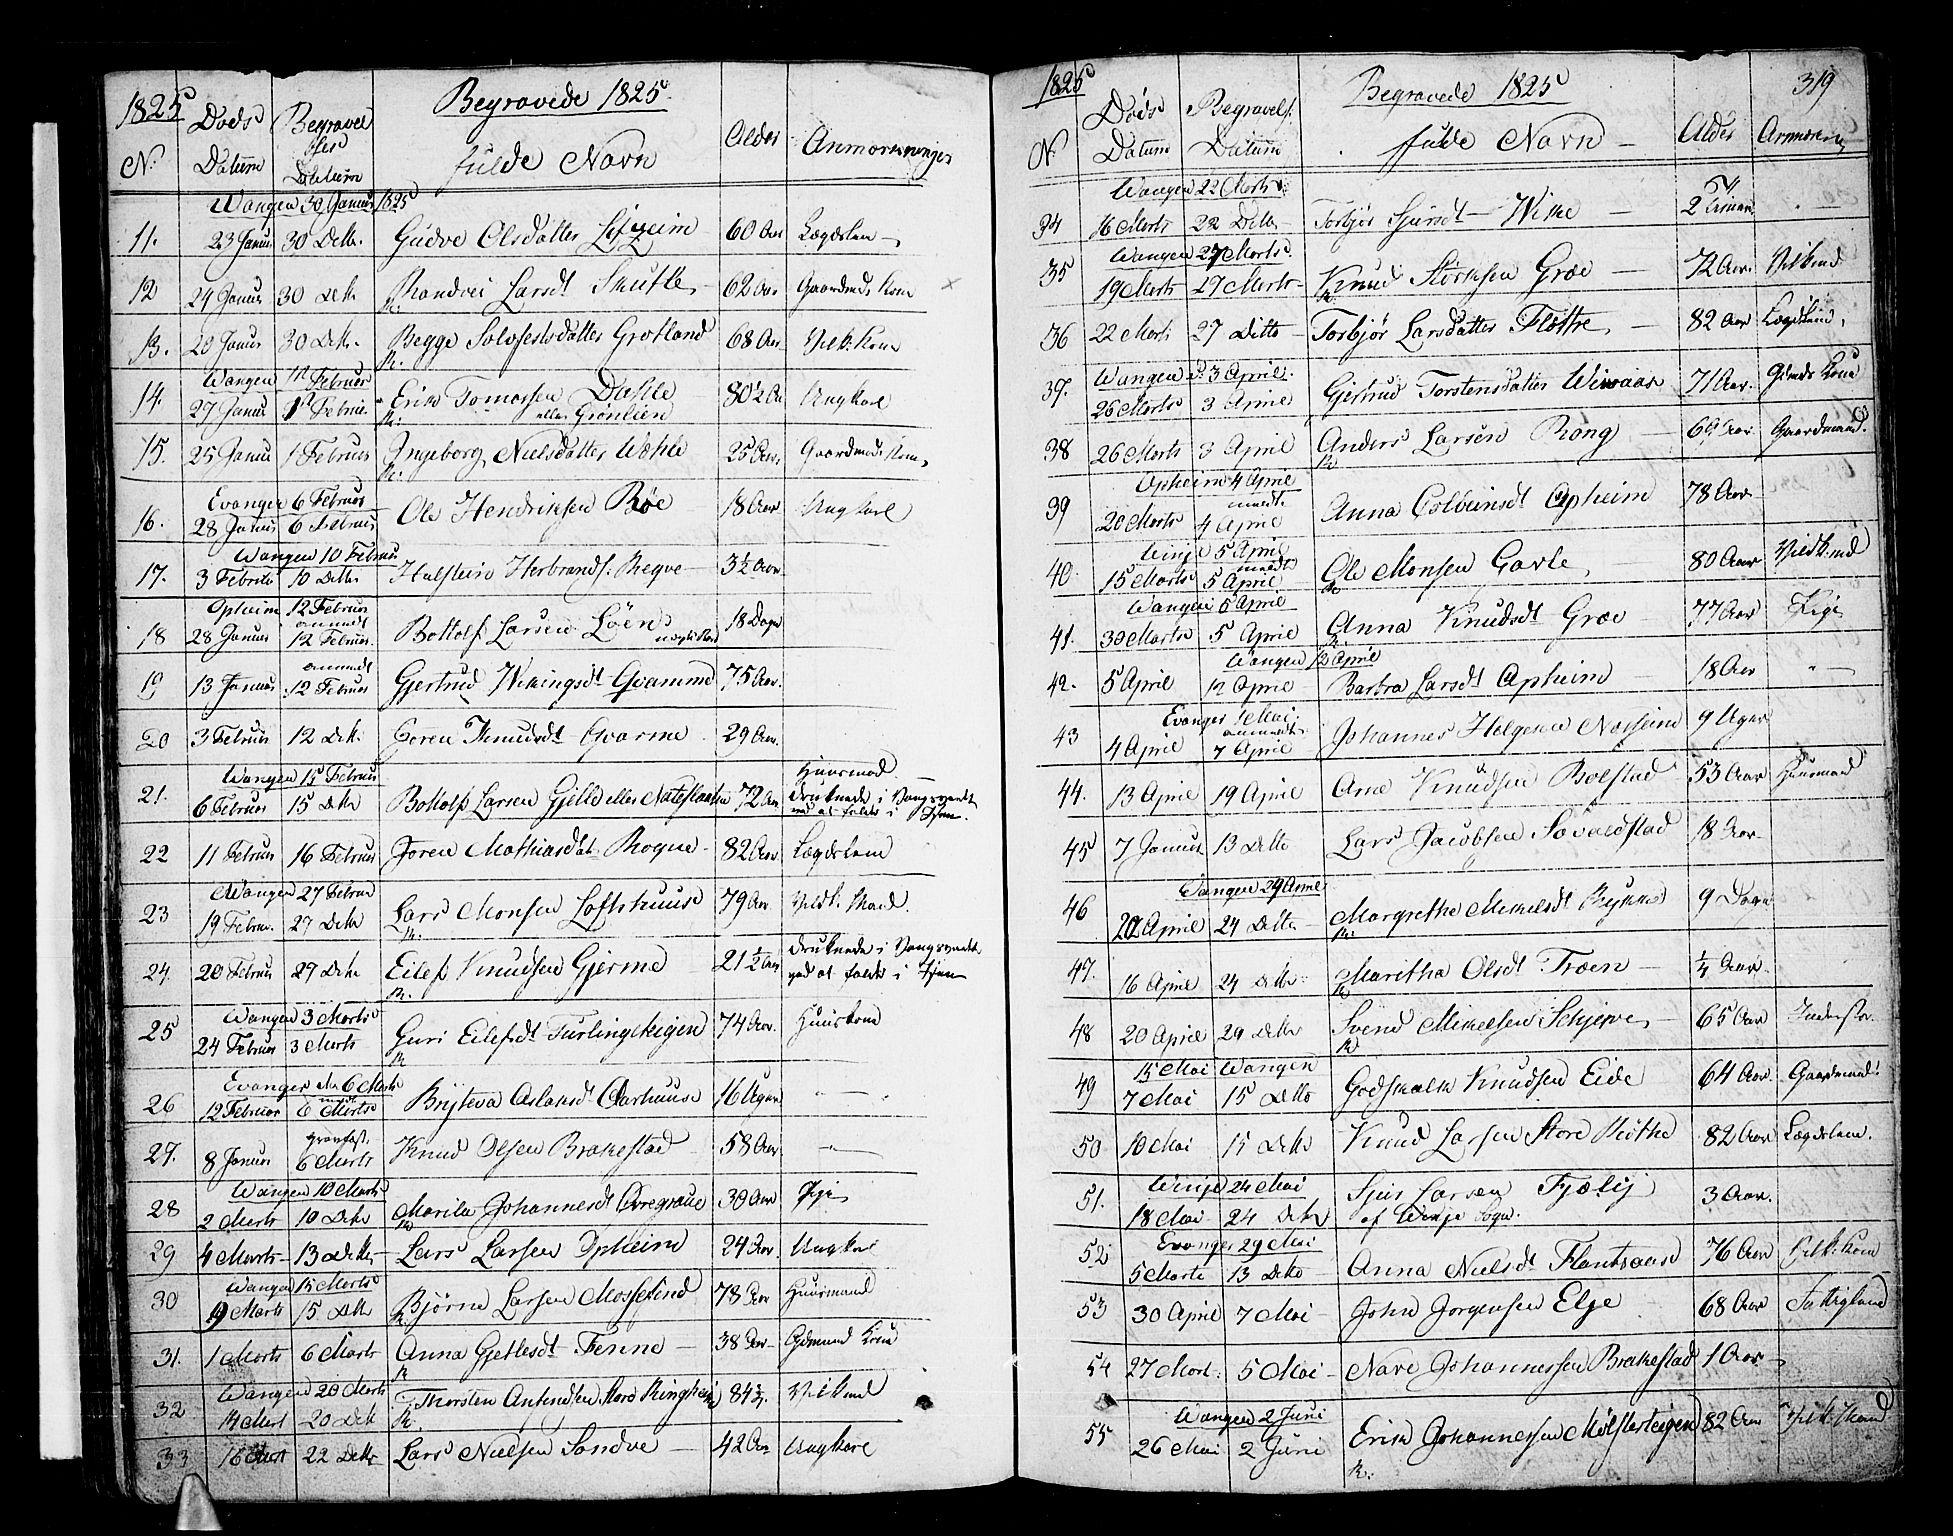 1825 Begravede 1825
Døds Begravel Alder Anmærkninger
N. Datum Datum fulde Navn
Wangen 30 Januar 1825
11. 23 Januar 30 Ditto Gudve Olsdatter 60 Aar Lægdslem
12 24 Januar 30 Ditto Randvei Larsdt Skutle 62 Aar Gaardmds Kone
13. 20 Januar 30 Ditto Begge Solvfestsdatter Grotland 68 Aar Vilk. Kone
Wangen Februar
14. 27 Januar Februar Erik Tomassen Dahle 80½ Aar Ungkarl
eller Grønlien
15. 25 Januar 1 Februar Ingeborg Nielsdatter Wæhle 25 Aar Gaardmds Kone
Evanger 6 Februar
16. 28 Januar 6 Februar Ole Hendriksen Bøe 18 Aar Ungkarl
Wangen 10 Februar
17. 3 Februar 10 Ditto Halstein Herbrands. Regve 3½ Aar
Opheim 12 Februar
18 28 Januar 12 Februar Bottolf Larsen Løen 18 Dage
19 13 Januar 12 Februar Gjertrud Wikingsdt Qvamme 75 Aar
20 3 Februar 12 Ditto Goren Knudsdt Qvarme 29 Aar
Wangen 15 Februar Huusmand
21. 6 Februar 15 Ditto Bottolf Larsen Gjelle eller 72 Aar druknede i Vangsvandet
ved at falde i Isen
22 11 Februar 16 Februar Joren Mathiasdt Rogne 82 Aar Lægdslem
Wangen 27 Februar
23 19 Februar 27 Ditto Lars Monsen Lofthuus 79 Aar Vilk. Mand.
24 20 Februar 27 Ditto Eilef Knudsen Gjerme 21½ Aar druknede i Vangsvandet
ved at falde i Isen
Wangen 3 Marts
25 24 Februar 3 Marts Guri Eilefsdt Turlingsteigen 74 Aar Huuskone
Evanger 6 Marts
26 12 Februar 6 Marts Bryteva Aslaksdt Aarhuus 16 Uger
27. 8 Januar 6 Marts Knud Olsen Brakestad 58 Aar
Wangen 10 Marts
28 2 Marts 10 Ditto Marita Johannesdt 30 Aar Pige
29 4 Marts 13 Ditto Lars Larsen Opheim 24 Aar Ungkarl
Wangen 15 Marts
30 9 Marts 15 Ditto Bjørne Larsen Mossefind 78 Aar Huusmand
31. 1 Marts 6 Marts Anna Gjetlesdt Fenne 38 Aar Gdmand Kone
Wangen 20 Marts
32 14 Mart 20 Ditto Thorsten Store Ringheim 84½ Vilkmd
33 16 Mart 22 Ditto Lars Nielsen Sondve 42 Aar Ungkarl
1825 Begravede 1825 319
Døds Begravels.
N. Datum Datum fulde Navn Alder
Wangen 22 Marts
34 16 Marts 22 Ditto Torbjør Sjursdt Wike 2 Timer
Wangen 27 Marts
35 19 Marts 27 Marts Knud Størksen Græe 72 Aar Vilkmd
36 22 Marts 27 Ditto Torbjør Larsdatter Fløttre 82 Aar Lægdslem
Wangen d. 3 April
37. 26 Marts 3 April Gjertrud Torstensdatter Winsaas 71 Aar Gdmds Kone
38 26 Marts 3 April Anders Larsen Rong 69 Aar Gaardmand
Opheim 4 April
39 20 Marts 4 April Anna Colbeinsdt Opheim 78 Aar
Winje 5 April
40. 15 Marts 5 April Ole Monsen Gavle 80 Aar Vilkmd
Wangen 5 April
41. 30 Marts 5 April Anna Knudsdt Græe 77 Aar Pige
Wangen 12 April
42. 5 April 12 April Barbra Larsdt Opheim 18 Aar
Evanger 1 Mai
43 4 April 7 April Johannes Helgesen Norheim 9 Uger
44. 13 April 19 April Arne Knudsen Bolstad 53 Aar Huusmand
45 7 Januar 13 Ditto Lars Jacobsen 18 Aar
Wangen 24 April
46 20 April 24 Ditto Margrethe Mikelsdt Rykke 9 Dage
47. 16 April 24 Ditto Maritha Olsdt Troen ¼ Aar
48 20 April 29 Ditto Svend Mikelsen Schjerve 65 Aar Inderst
15 Mai Wangen
49 7 Mai 15 Ditto Godskalk Knudsen Eide 64 Aar Gaardmand
50 10 Mai 15 Ditto Knud Larsen Store Røthe 82 Aar Lægdslem.
Winje 24 Mai
51. 18 Mai 24 Ditto Sjur Larsen 3 Aar.
af Winje Sogn.
Evanger 29 Mai
52 5 Marts 13 Ditto Anna Nielsdt Flantsaas 76 Aar Vilk. Kone
53 30 April 7 Mai John Jorgensen Elje 68 Aar Fattiglem
54 27 Mart. 5 Mai Nare Johannessen Brakestad 1 Aar
Wangen 2 Juni
55 26 Mai 2 Juni Erik Johannessen Mølstersteigen 82 Aar Vilk. Mand